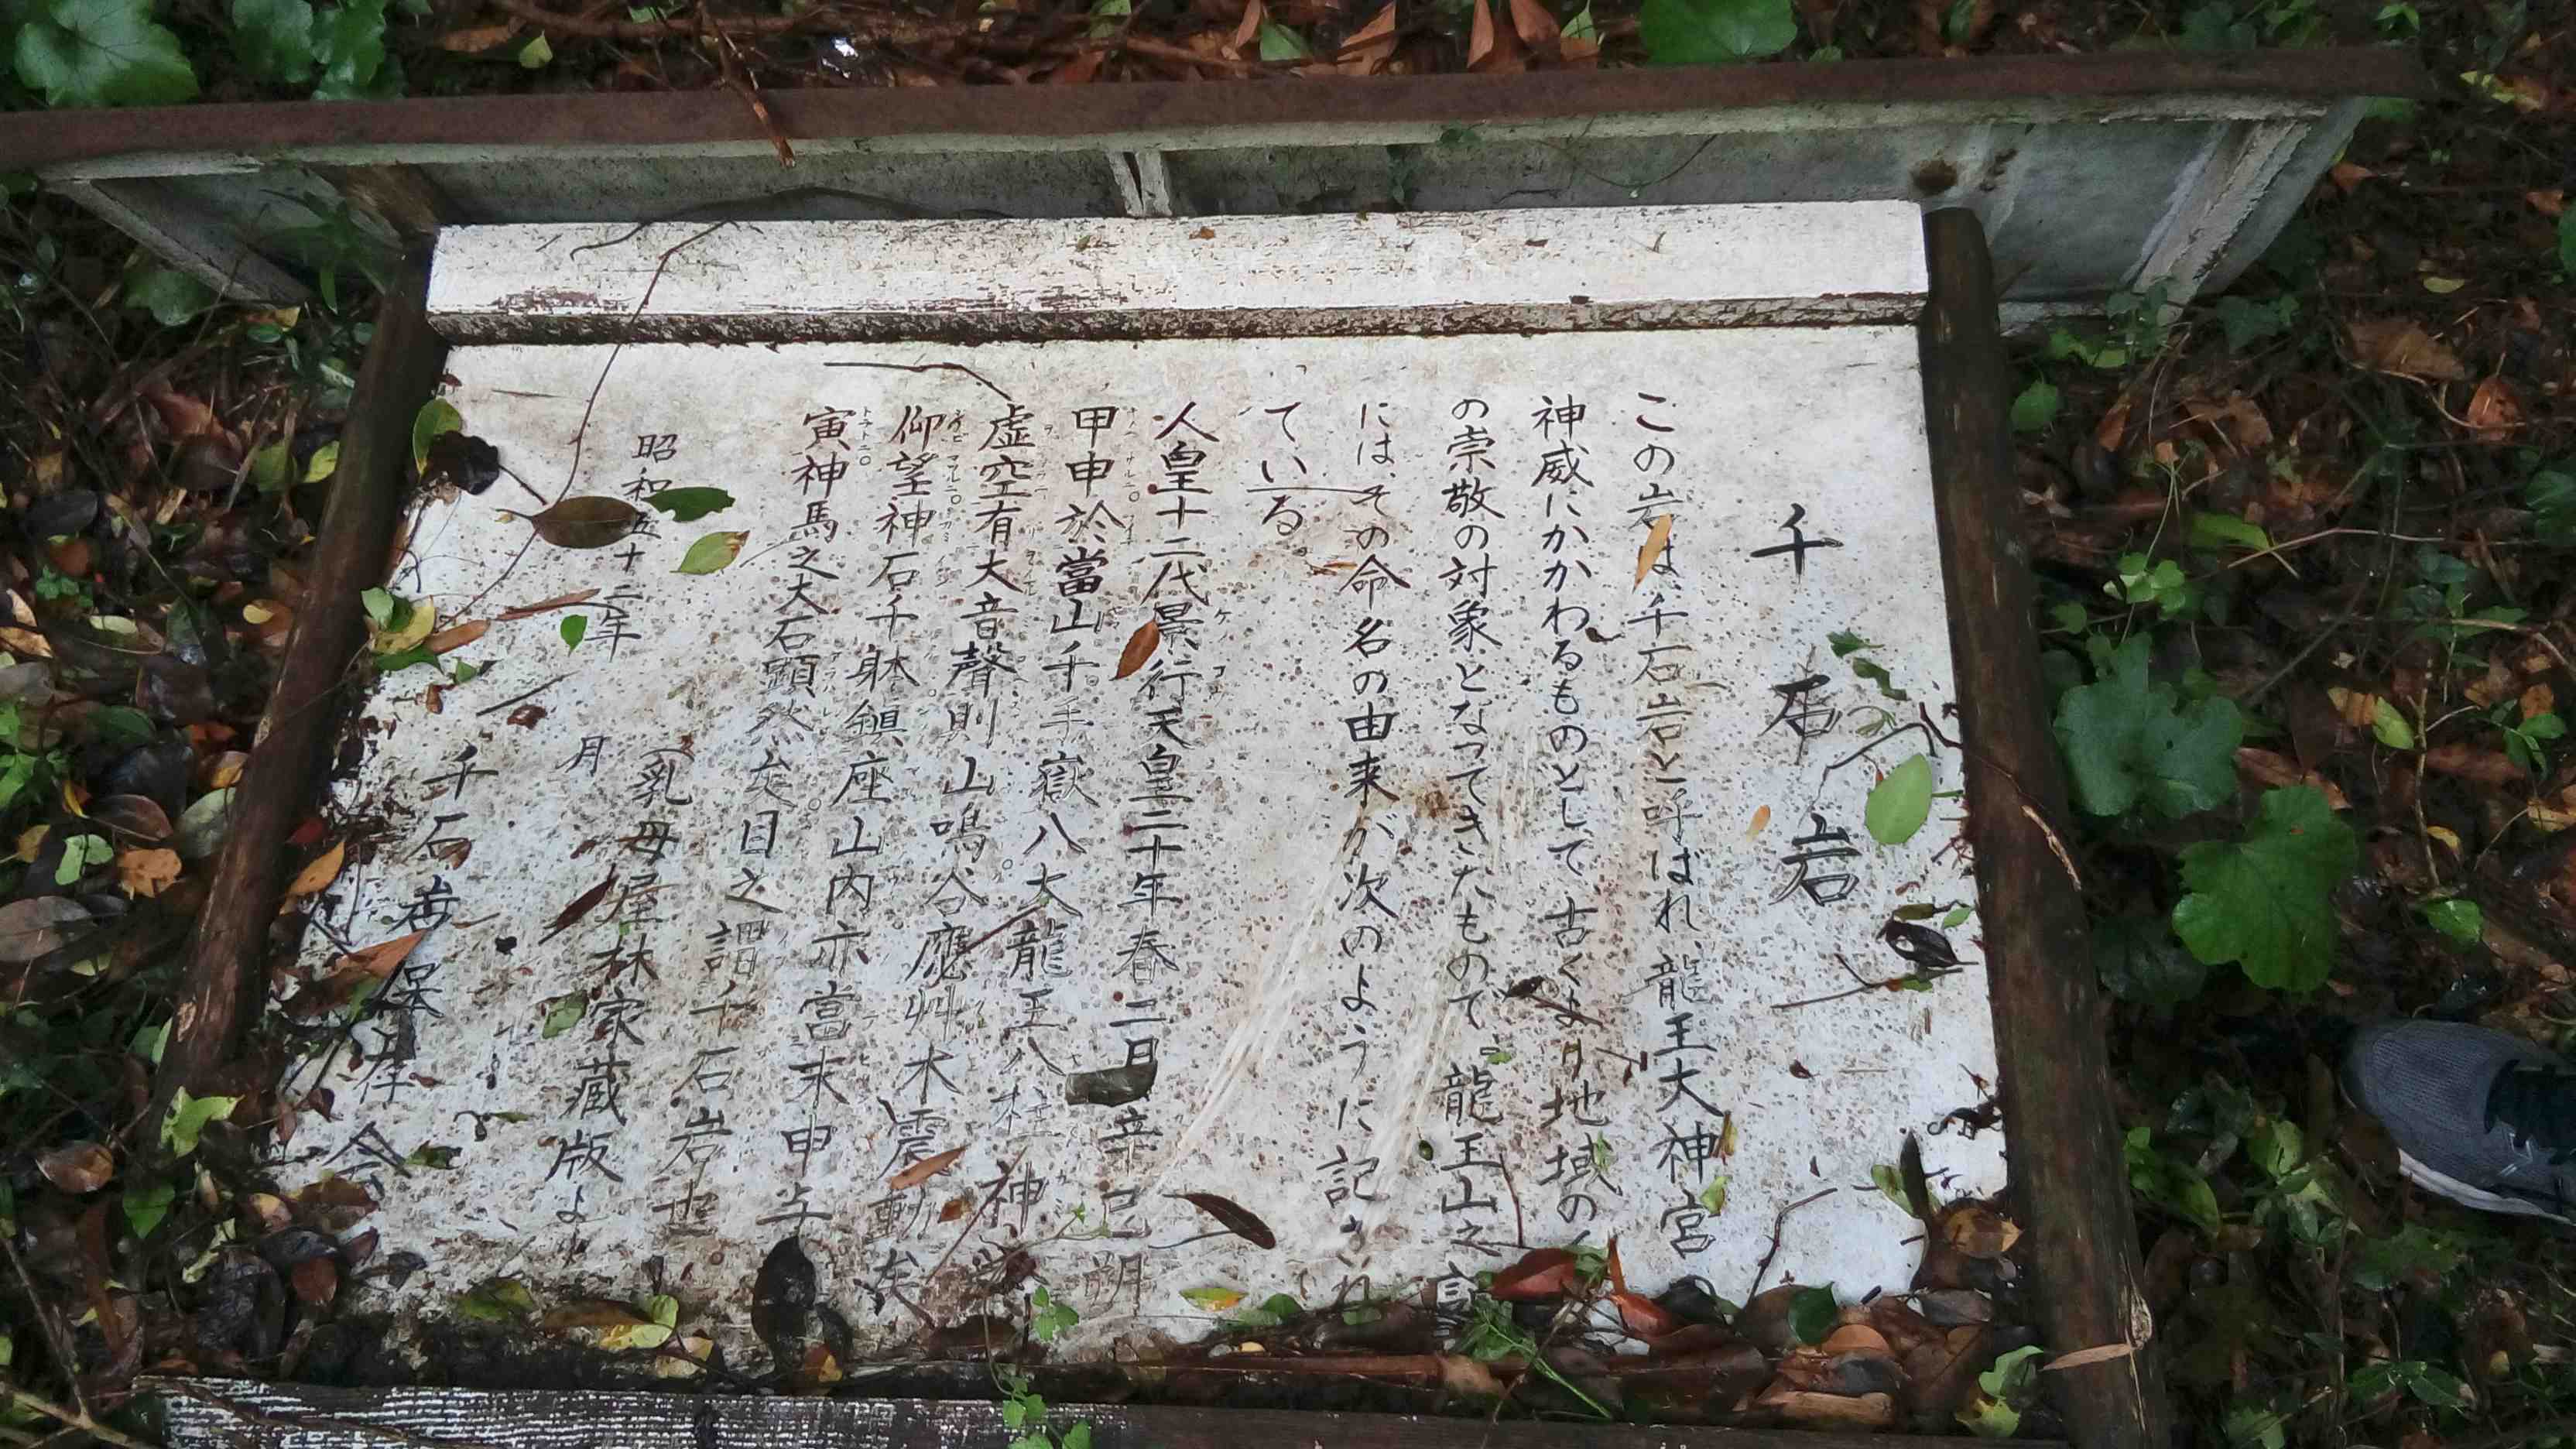 千石岩
この岩は、千石岩と呼ばれ、龍王大神宮
神威にかかわるものとして古くより地域の
の崇敬の対象となってきたもので、龍王山之
には、その命名の由来が次のように記され
ている。
人皇十二代景行天皇二十年春二日辛巳朔
甲申於當山千手嶽八大龍王八柱神
虚空有大音聲則山鳴谷應艸木震動矣
仰望神石千躰鎮座山内亦當末申与
寅神馬之大石顕然矣目之謂千石岩也
(乳母屋林家蔵版よ
昭和五十二年 月
千石岩保存会